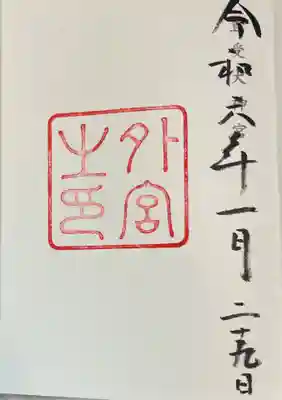 令和六年十一月二十九日
外宮
之印